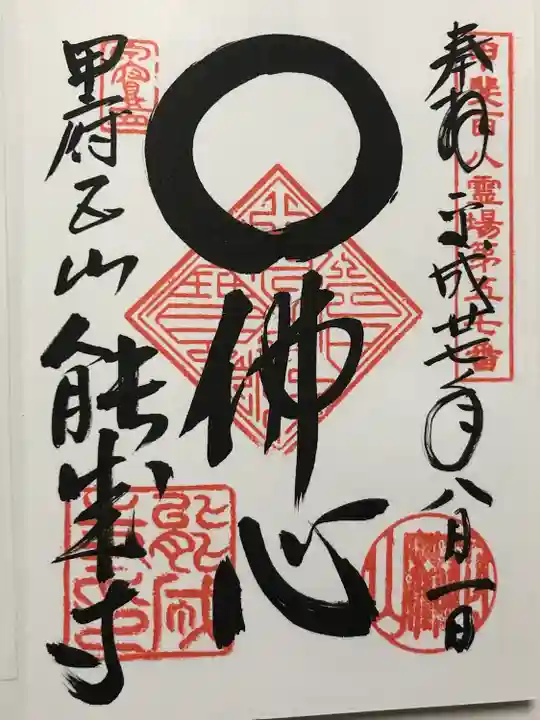 奉拝 平成廿七年八月一日
甲斐百八霊場第五七番
佛心
甲府五山 能成寺